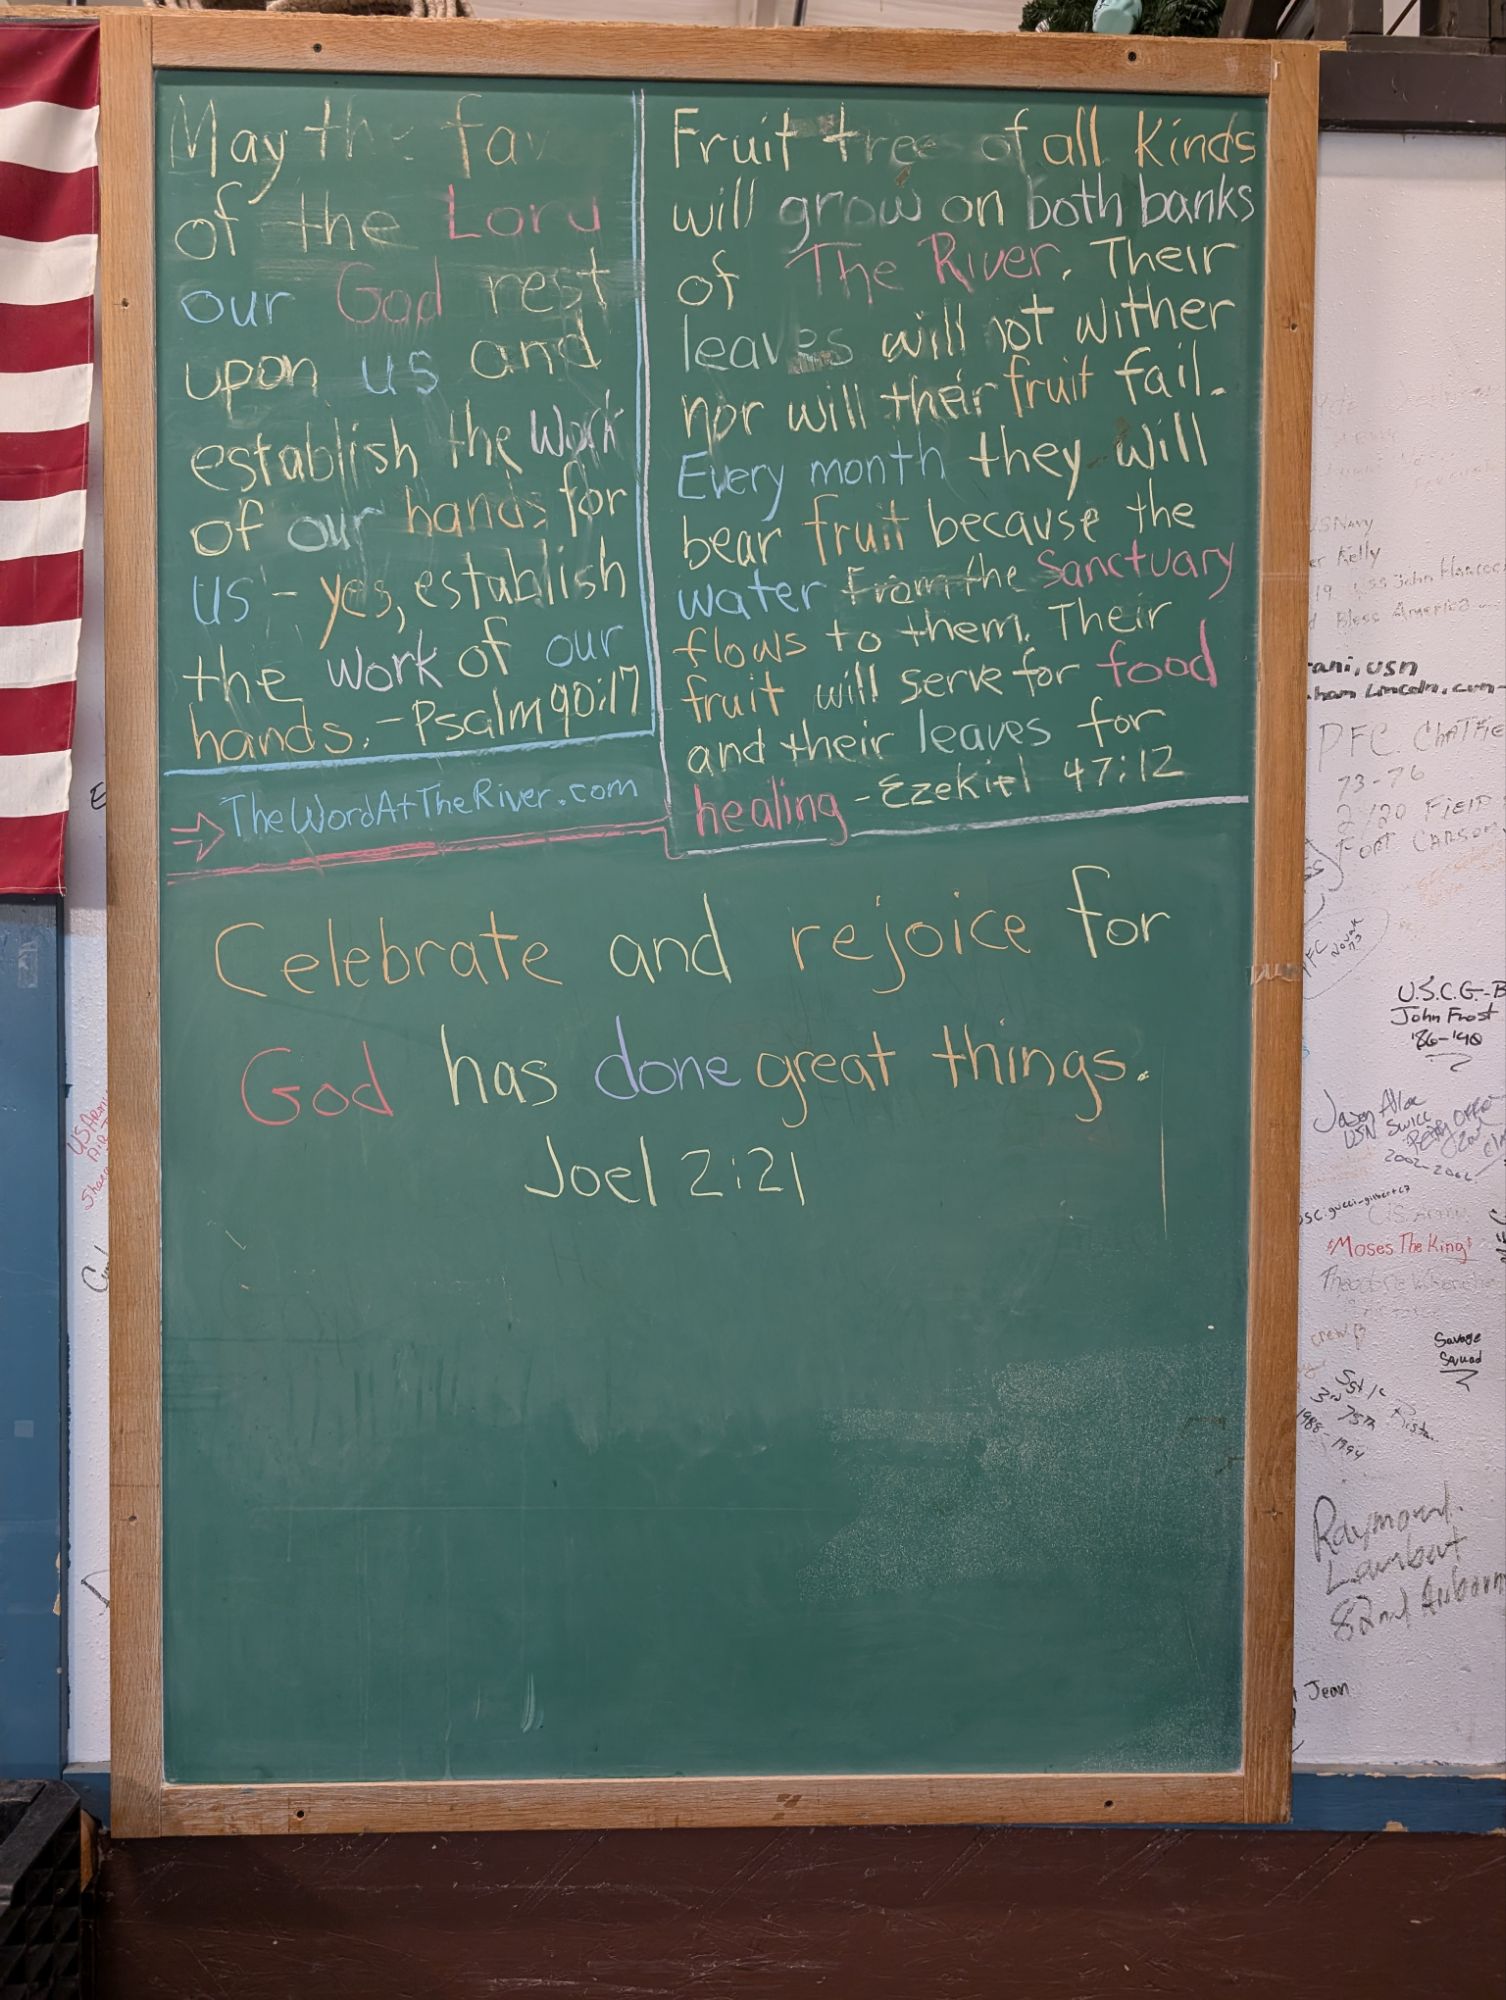 May the fa
of the Lord
our God rest
upon us and
establish the work
of our hands for
us - yes, establish
the work of our
hands. - Psalm 90:17
→ TheWordAtTheRiver.com
Fruit tree of all kinds
will grow on both banks
of The River. Their
leaves will not wither
nor will their fruit fail.
Every month they will
bear fruit because the
water from the Sanctuary
flows to them. Their
fruit will serve for food
and their leaves for
healing - Ezekiel 47:12
Celebrate and rejoice for
God has done great things.
Joel 2:21
USNavy
Kelly
19 USS John Hancoc
Bless America
rani, USN
ham Lincoln, cvn-
PFC Chatfie
73-76
2/20 Field
Fort Carson
PFC
U.S.C.G.-B
John Frost
'86-'90
Jason
USN SWCC
2002-2006
US Army
Moses The King
crew
Savage
Squad
1988-1994
Raymond
Lambert
82nd Airborn
Jean
US Army